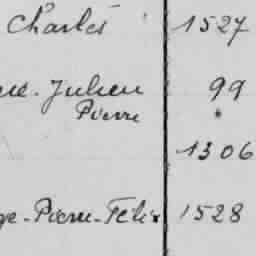 Charles 1527
Julien 99
Pierre "
1306
Pierre-Félix 1528